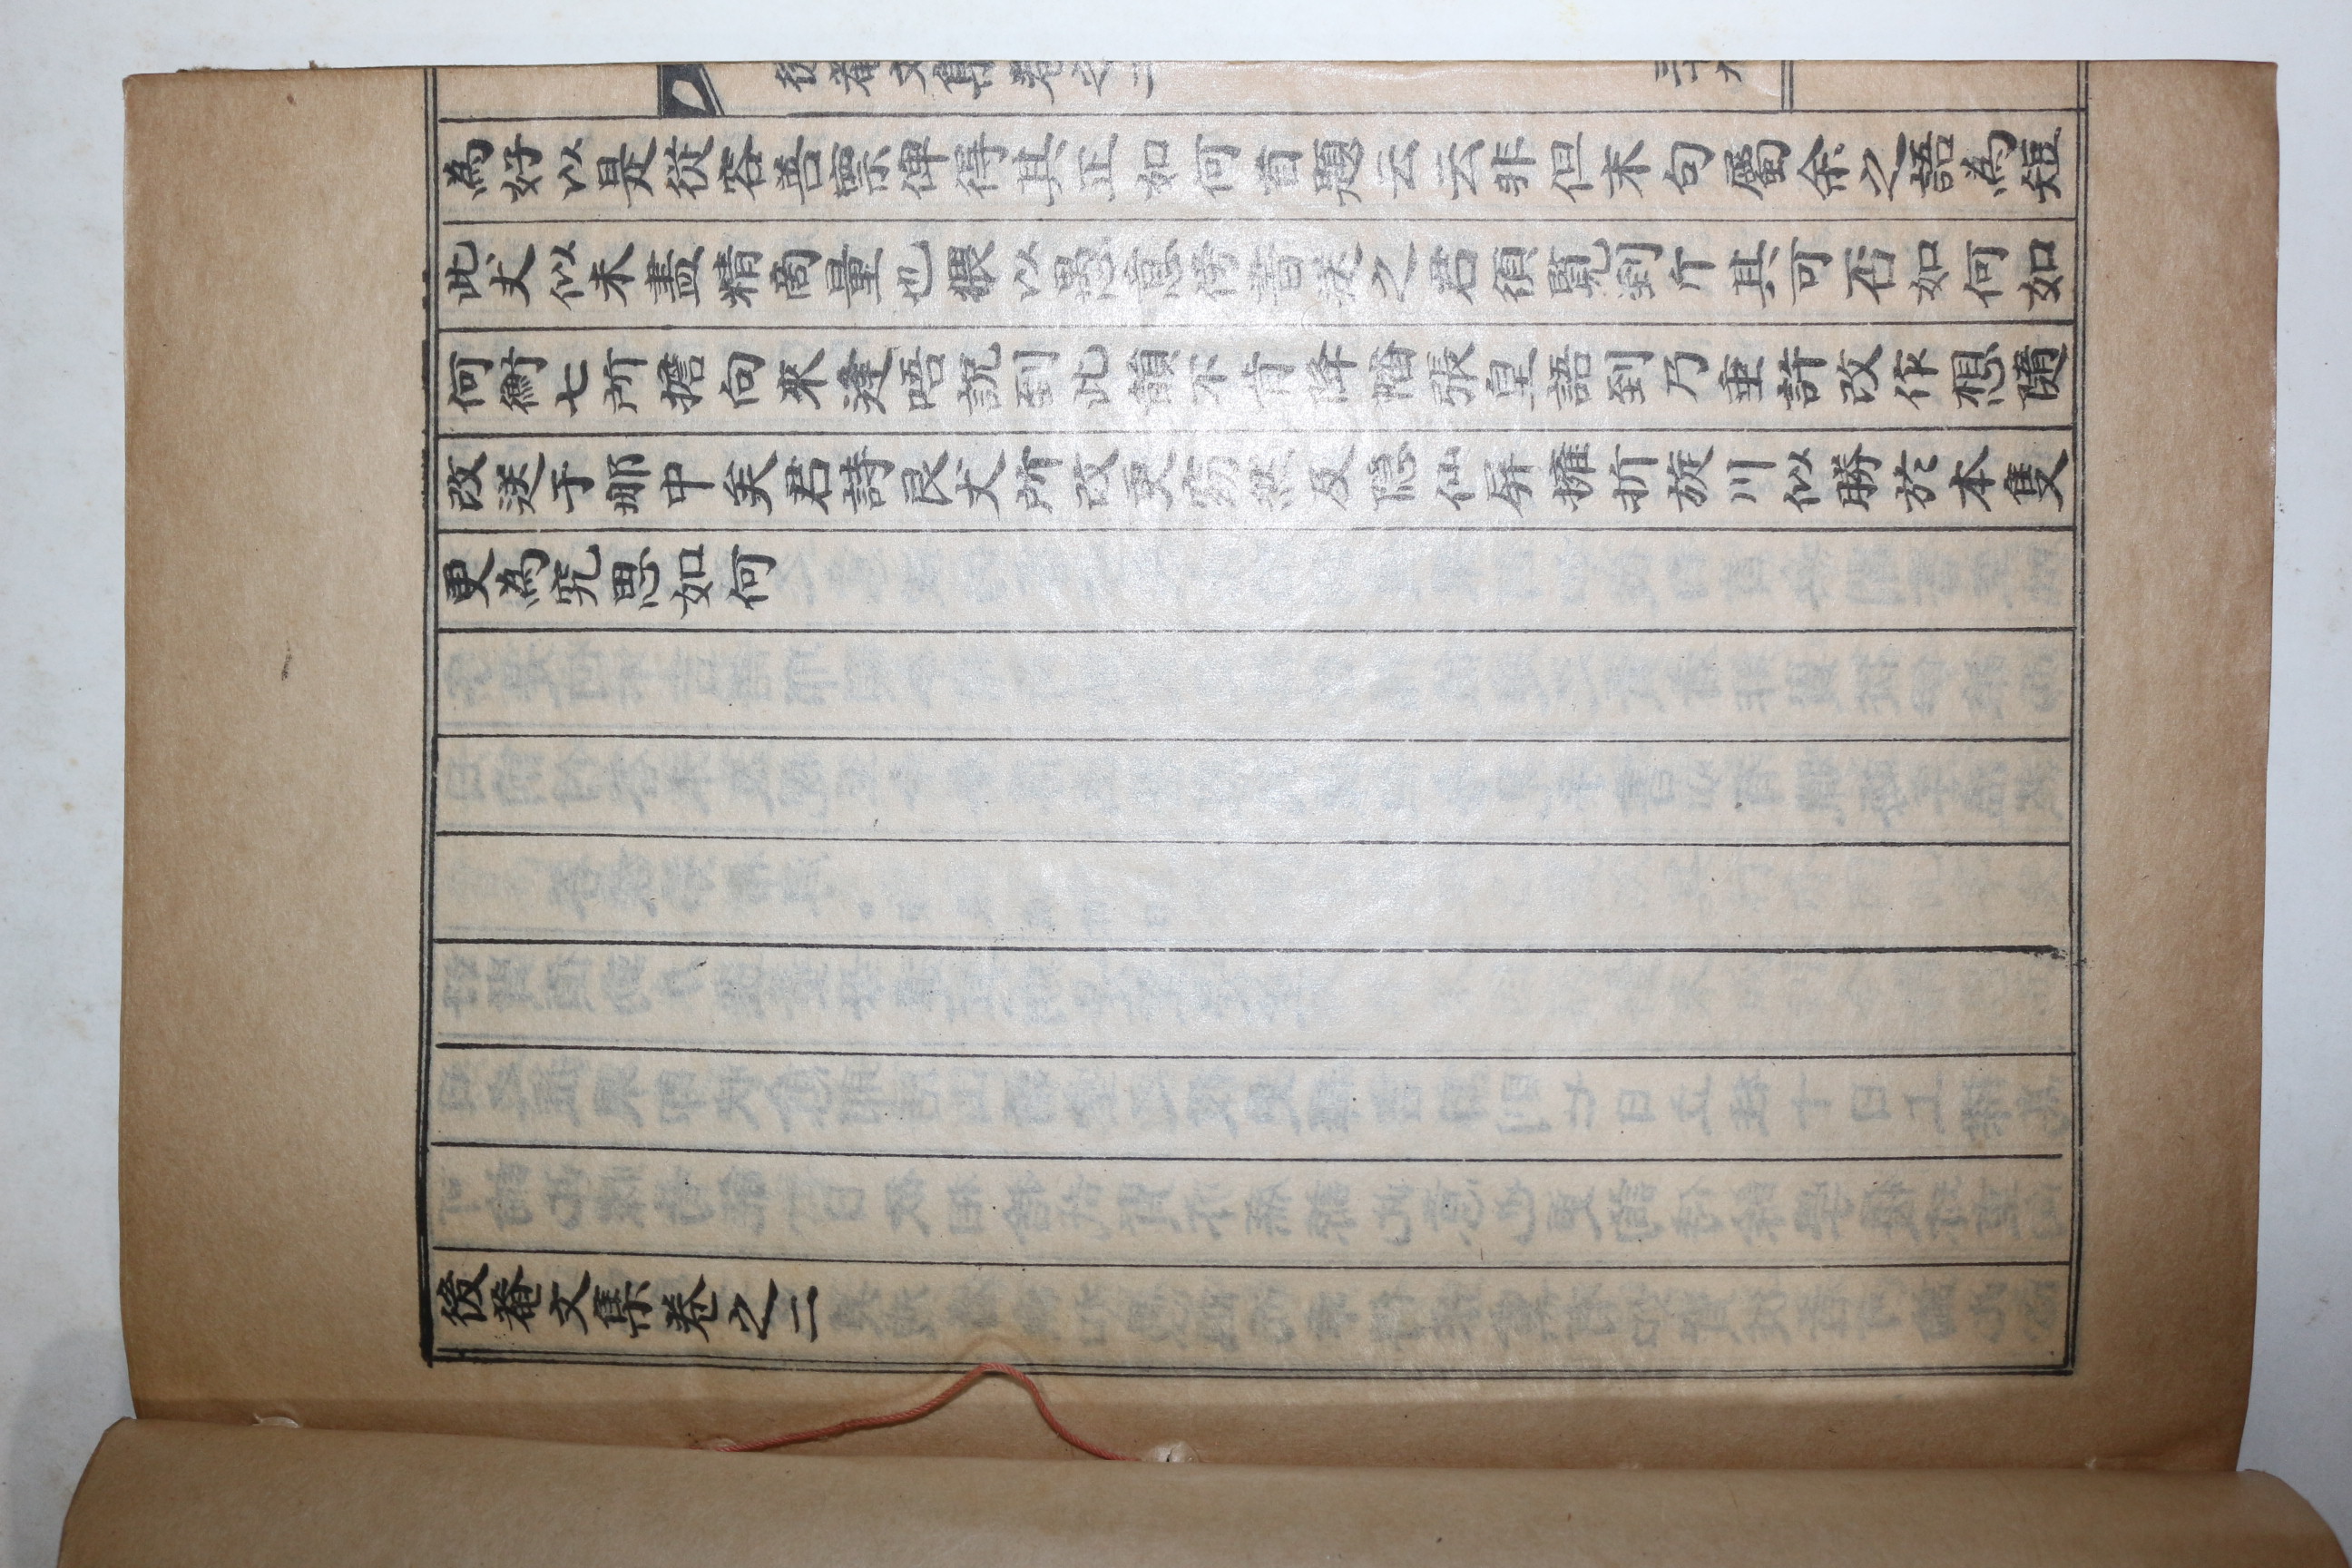 後菴文集卷之二
三十九
為好以是從容善稟俾得其正如何首題云云非但末句屬余之語為短
此丈似未盡精商量也猥以愚意傍書送之君須覽到斤其可否如何如
何衡七所擔向來逢唔說到此頷不肯降幡張皇語到乃垂許改作想隨
改送于那中矣君詩艮丈所改更窈然及隠仙屛擁折旋川似勝於本隻
更為究思如何
後菴文集卷之二